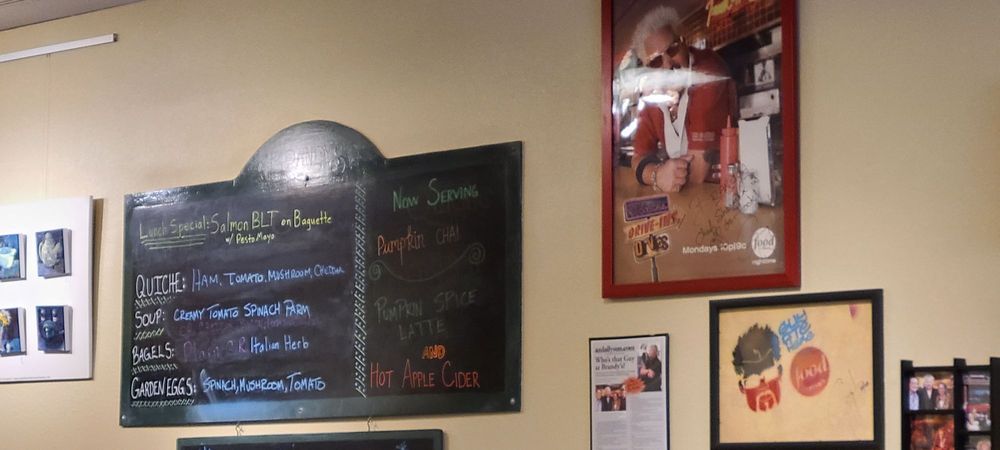 Lunch Special: Salmon BLT on Baguette
w/ Pesto Mayo
QUICHE: HAM, TOMATO, MUSHROOM, CHEDDAR
SOUP: CREAMY TOMATO SPINACH PARM
BAGELS: Plain OR Italian Herb
GARDEN EGGS: SPINACH, MUSHROOM, TOMATO
NOW SERVING
Pumpkin CHAI
PUMPKIN SPICE
LATTE
AND
HOT APPLE CIDER
DRIVE-INS
DIVES
Mondays 10p|9c
food
nighttime
Who's that Guy
at Brandy's?
food